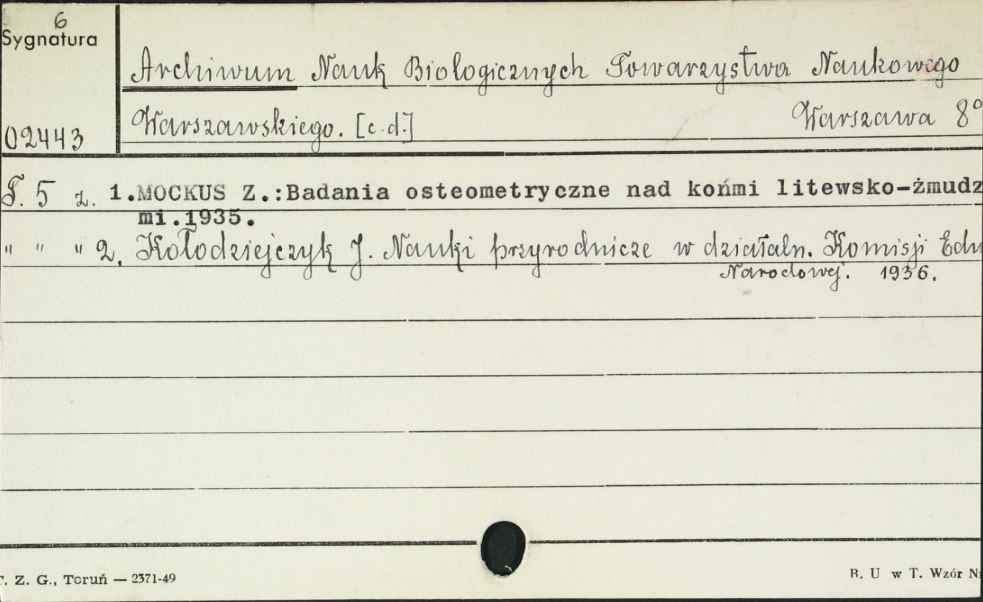 6
Sygnatura
02443
Archiwum Nauk Biologicznych Towarzystwa Naukowego
Warszawskiego. [c.d.] Warszawa 8°
T. 5 z. 1. MOCKUS Z.: Badania osteometryczne nad końmi litewsko-żmudz
mi. 1935.
" " " 2. Kołodziejczyk J. Nauki przyrodnicze w działaln. Komisji Edu
Narodowej. 1936.
T. Z. G., Toruń — 2371-49
B. U w T. Wzór Nr